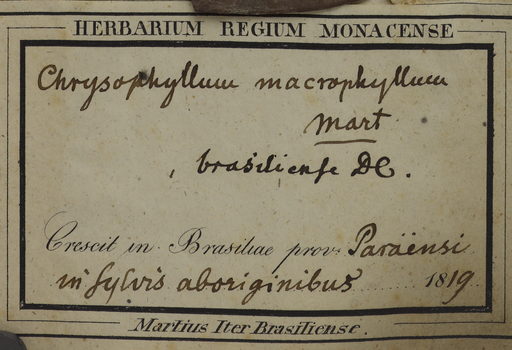 HERBARIUM REGIUM MONACENSE
Chrysophyllum macrophyllum
Mart
brasiliense DC.
Crescit in Brasiliae prov. Paraënsi
in Sylvis aboriginibus 1819
Martius Iter Brasiliense.